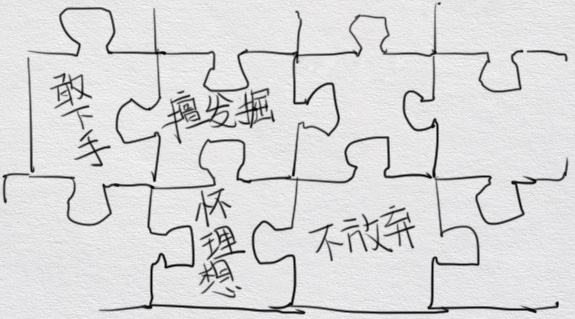 敢下手
擅发掘
怀理想
不放弃